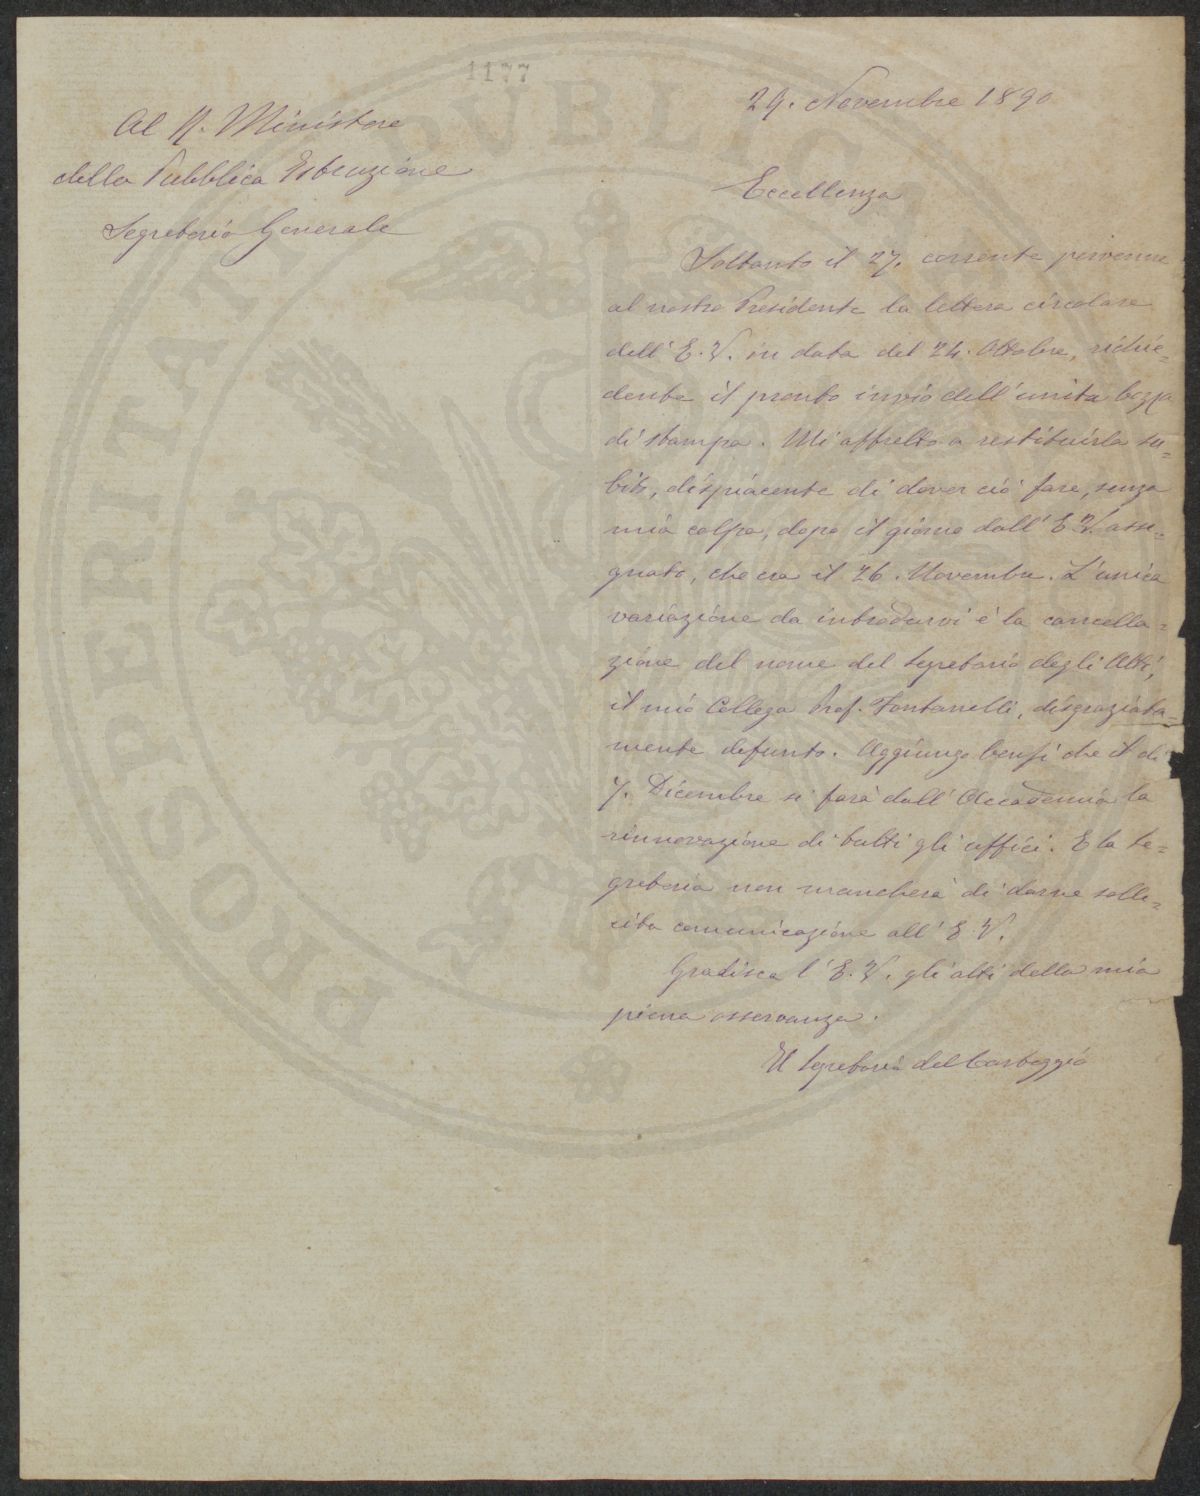 1177
29. Novembre 1890
Al R. Ministero
della Pubblica Istruzione
Segretario Generale
Eccellenza
Soltanto il 27. corrente pervenne
al nostro Presidente la lettera circolare
dell'E.V. in data del 24. Ottobre, richie=
dente il pronto invio dell'unita bozza
di stampa. Mi affretto a restituirla su=
bito, dispiacente di dover ciò fare, senza
mia colpa, dopo il giorno dall'E.V. asse=
gnato, che era il 26. Novembre. L'unica
variazione da introdurvi è la cancella=
zione del nome del Segretario degli Atti,
il mio Collega Prof. Fontanelli, disgraziata=
mente defunto. Aggiungo bensì che il dì
7. Dicembre si farà dall'Accademia la
rinnovazione di tutti gli uffici. E la Se=
greteria non mancherà di darne solle=
cita comunicazione all'E.V.
Gradisca l'E.V. gli atti della mia
piena osservanza.
Il Segretario del Carteggio
PROSPERITATI PUBLI